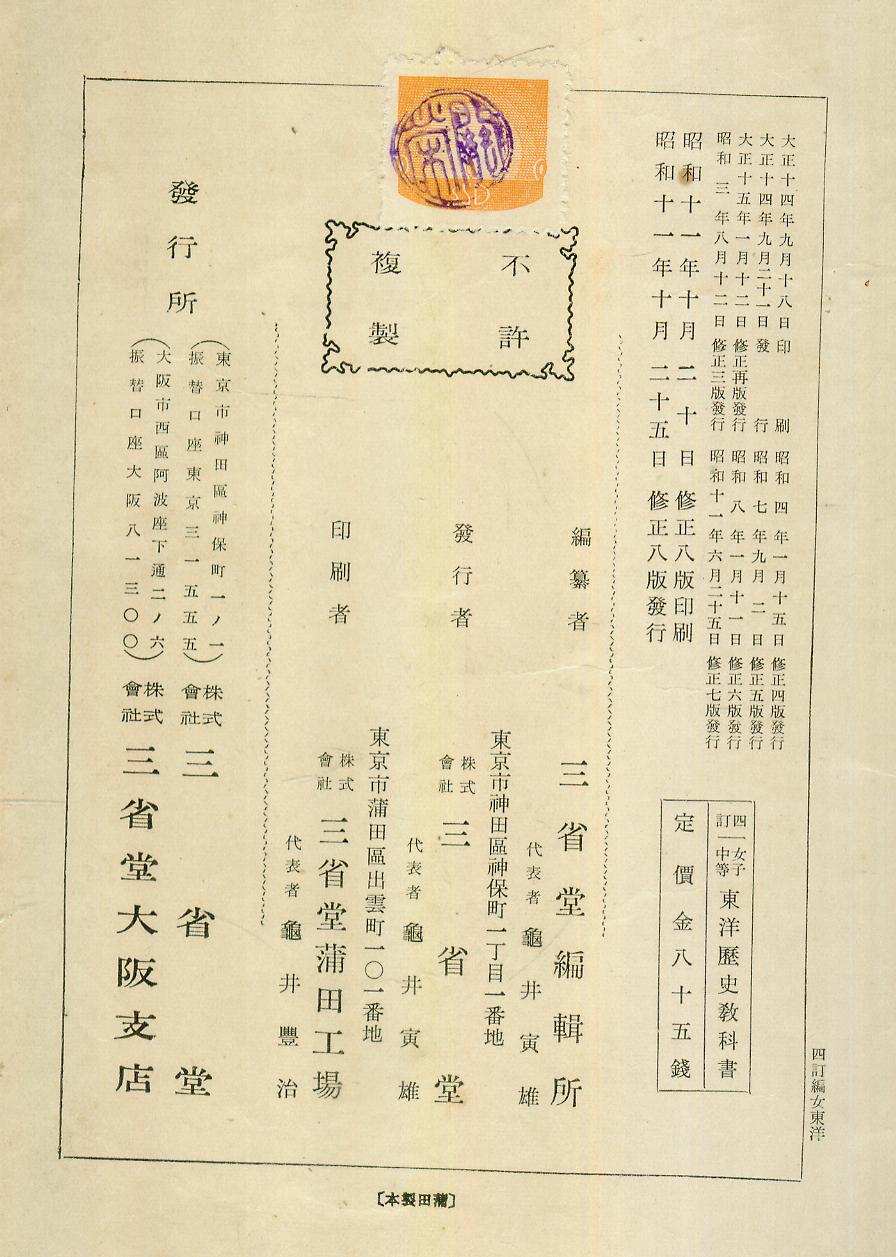 大正十四年九月十八日印刷
大正十四年九月二十一日發行
大正十五年一月十二日修正再版發行
昭和三年八月十二日修正三版發行
昭和四年一月十五日修正四版發行
昭和七年九月二日修正五版發行
昭和八年一月十一日修正六版發行
昭和十一年六月二十五日修正七版發行
昭和十一年十月二十日修正八版印刷
昭和十一年十月二十五日修正八版發行
四訂
女子中等
東洋歷史敎科書
定價金八十五錢
四訂編女東洋
SSD
不許
複製
編纂者
三省堂編輯所
代表者 龜井寅雄
東京市神田區神保町一丁目一番地
發行者
株式會社 三省堂
代表者 龜井寅雄
東京市蒲田區出雲町一〇一番地
印刷者
株式會社 三省堂蒲田工場
代表者 龜井豐治
發行所
(東京市神田區神保町一ノ一
振替口座東京三一五五五)
株式會社 三省堂
(大阪市西區阿波座下通二ノ六
振替口座大阪八一三〇〇)
株式會社 三省堂大阪支店
〔本製田蒲〕